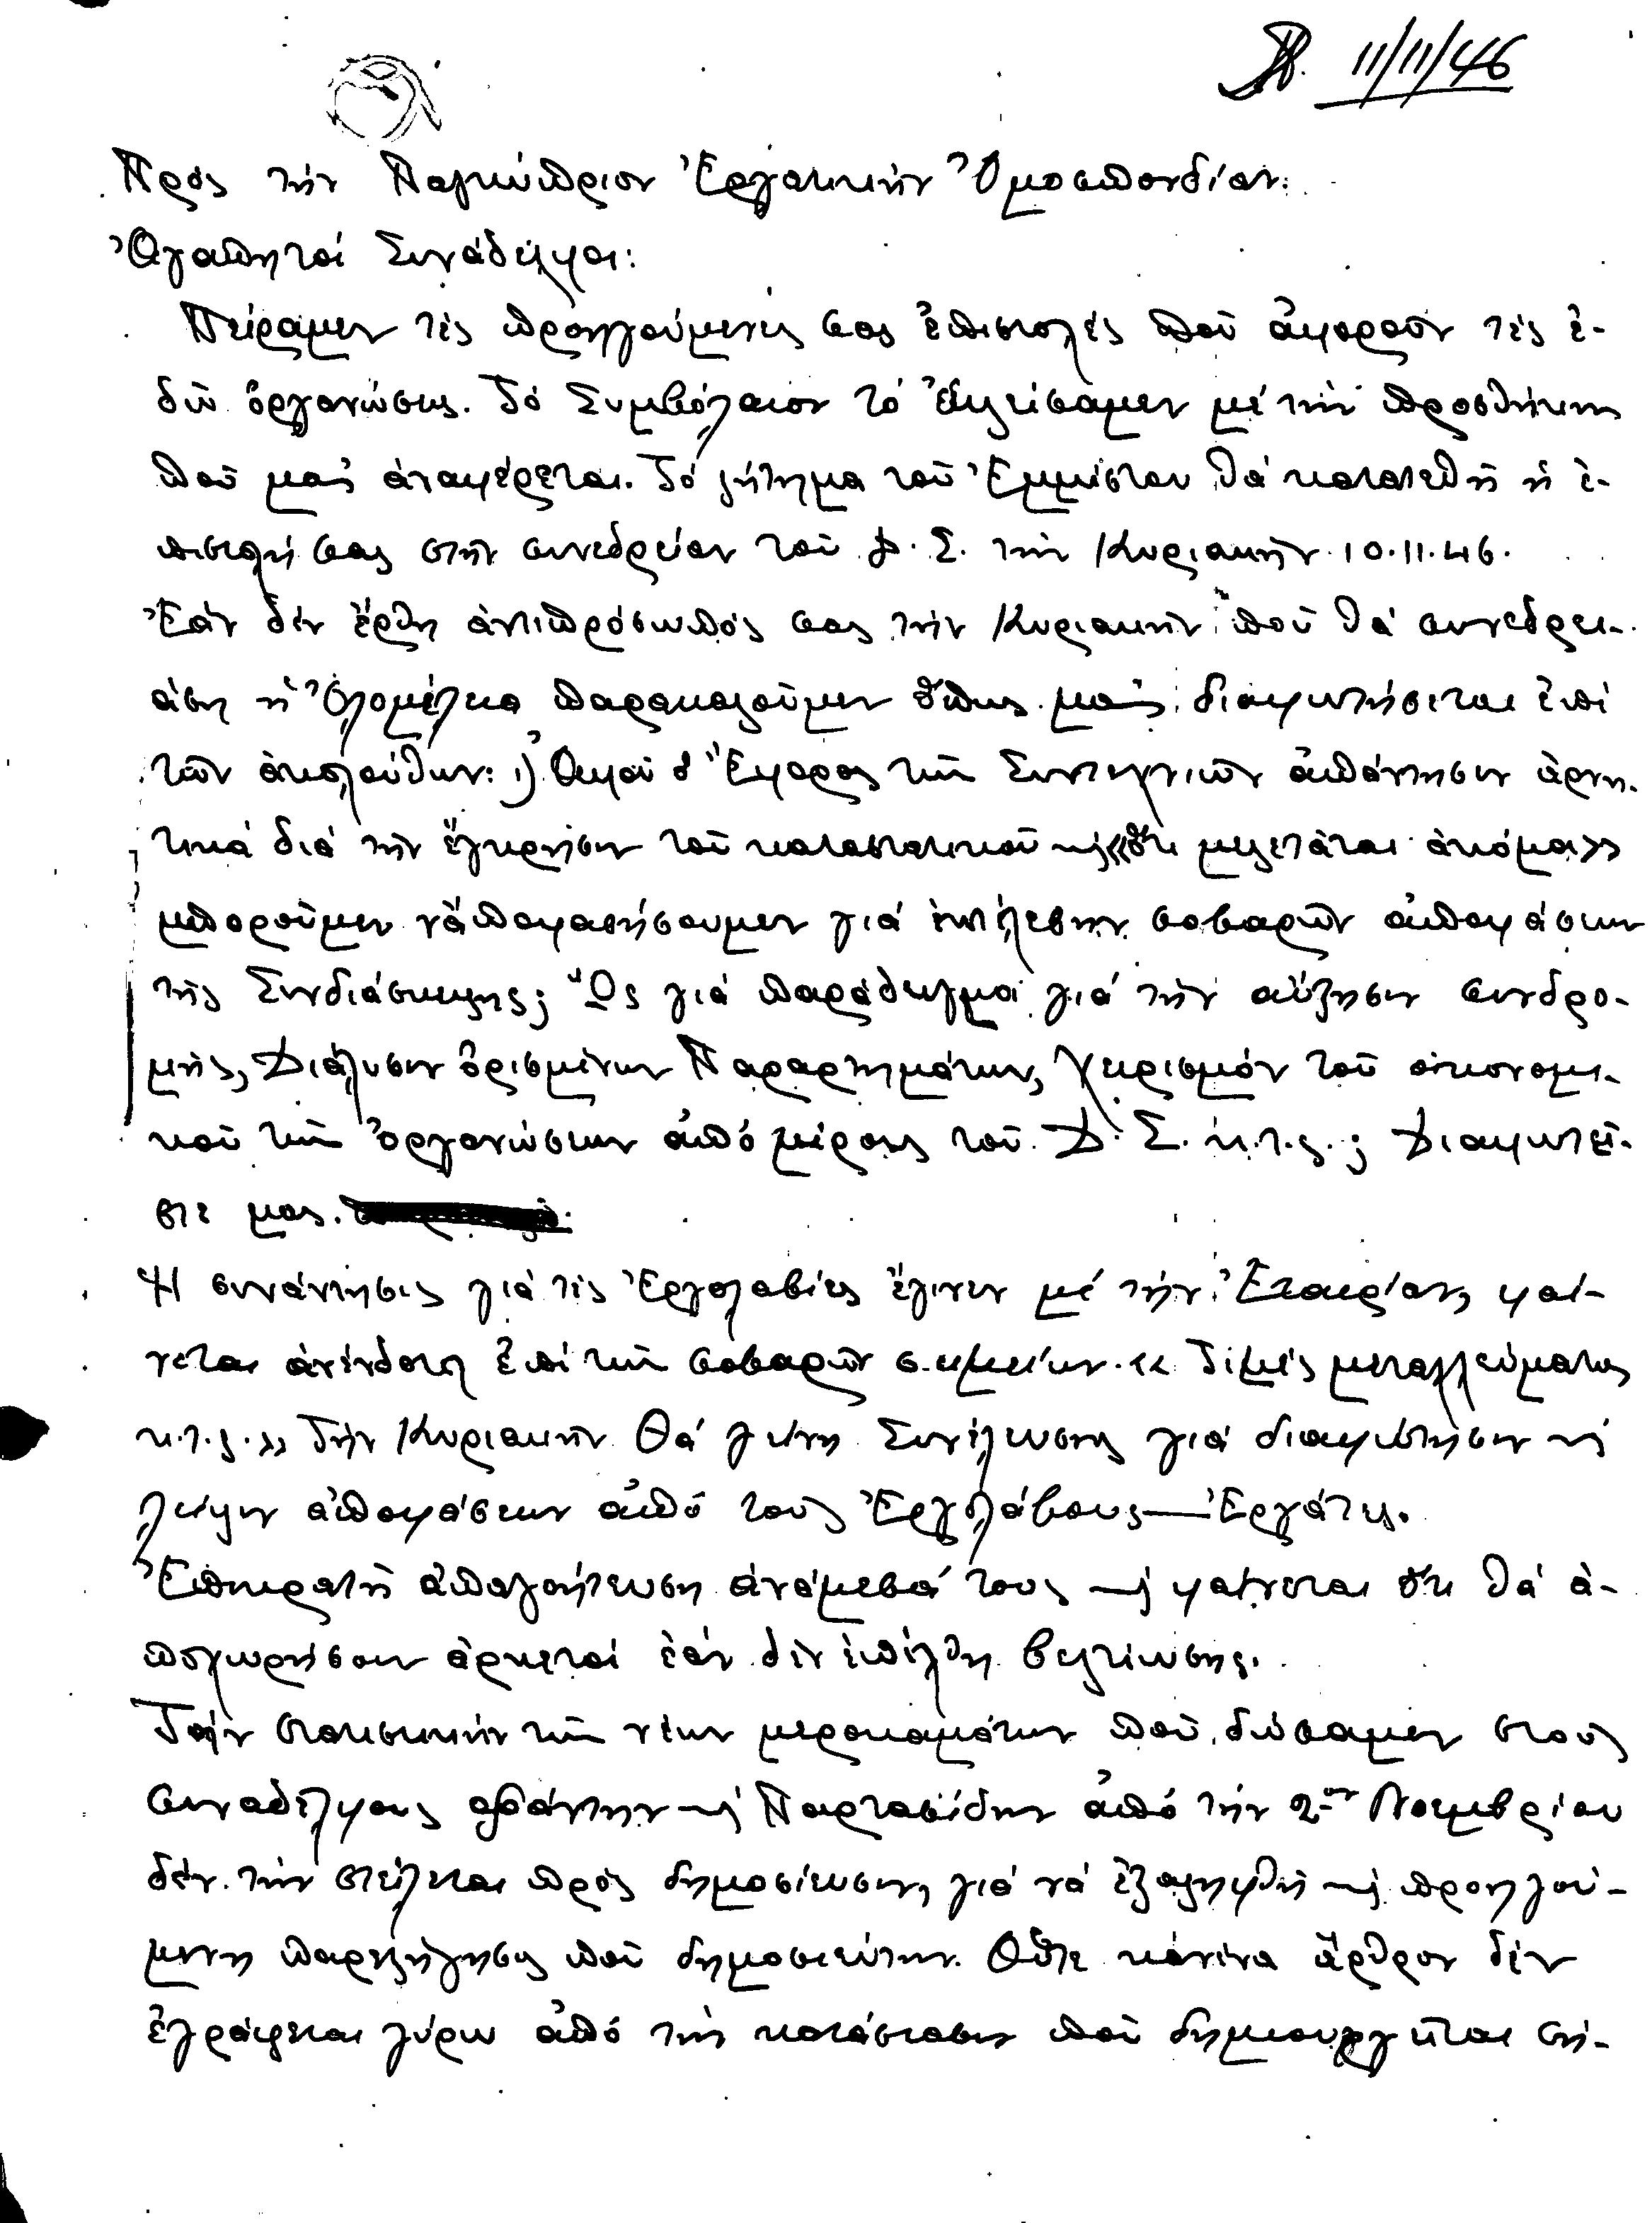 11/11/46
Πρός τήν Παγκύπριον Ἐργατικήν Ὁμοσπονδίαν:
Ἀγαπητοί Συνάδελφοι:
Πείραμεν τές προηγούμενες σας ἐπιστολές ποῦ ἀφοροῦν τές ἐ-
δῶ ὀργανώσεις. Τό Συμβόλαιον τό ἐκλείσαμεν μέ τήν προσθήκην
ποῦ μᾶς ἀναφέρεται. Τό ζήτημα τοῦ θά κατατεθῆ ἡ ἐ-
πιστολή σας στήν συνεδρείαν τοῦ Δ. Σ. τήν Κυριακήν 10.11.46.
Ἐάν δέν ἔρθη ἀντιπρόσωπός σας τήν Κυριακήν ποῦ θά συνεδρει-
άση ἡ Ὁλομέλεια παρακαλοῦμεν ὅπως μᾶς διαφωτήσεται ἐπί
τῶν ἀκολούθων: 1) Ἀφοῦ ὁ Ἔφορος τῶν Συντεχνιῶν ἀπάντησεν ἀρνη-
τικά διά τήν ἔγκρησιν τοῦ καταστατικοῦ κ̣ «ὅτι μελετᾶται ἀκόμα»
μποροῦμεν νἀποφασήσουμεν γιά ἐκτέλεσην σοβαρῶν ἀποφάσεων
τῆς Συνδιάσκεψης; Ὡς γιά παράδειγμα γιά τήν αὔξησιν συνδρο-
μῆς, Διάλυσιν ὁρισμένων Παραρτημάτων, χειρισμόν τοῦ οἰκονομι-
κοῦ τῶν ὀργανώσεων ἀπό μέρους τοῦ Δ. Σ. κ.τ.λ.; Διαφωτεῖ-
στε μας.
Ἡ συνάντησις γιά τίς Ἐργολαβίες ἔγινεν μέ τήν Ἑταιρίαν, φαί-
νεται ἀνένδοτη ἐπί τῶν σοβαρῶν σημείων «Τιμές μεταλλεύματος
κ.τ.λ.» Τήν Κυριακήν θά γείνη Συνέλευσης γιά διαφώτησιν κ̣
λείψιν ἀποφάσεων ἀπό τούς Ἐργολάβους—Ἐργάτες.
Ἐπικρατῆ ἀπαγοήτευση ἀνάμεσά τους κ̣ φαίνεται ὅτι θά ἀ-
ποχωρήσουν ἀρκετοί ἐάν δέν ἐπέλθη βελτίωσης.
Τήν στατιστικήν τῶν νέων μεροκαμάτων ποῦ δώσαμεν στούς
συναδέλφους κ̣ Παρτασίδην ἀπό τήν 2αν Νοεμβρίου
δέν τήν στείλεται πρός δημοσίευσιν, γιά νά ἐξαληφθῆ κ̣ προηγού-
μενη παρεξήγησις ποῦ δημοσιεύτην. Οὔτε κάνένα ἄρθρον δέν
ἐγράψεται γύρω ἀπό τήν κατάστασιν ποῦ δημιουργῆται σή-